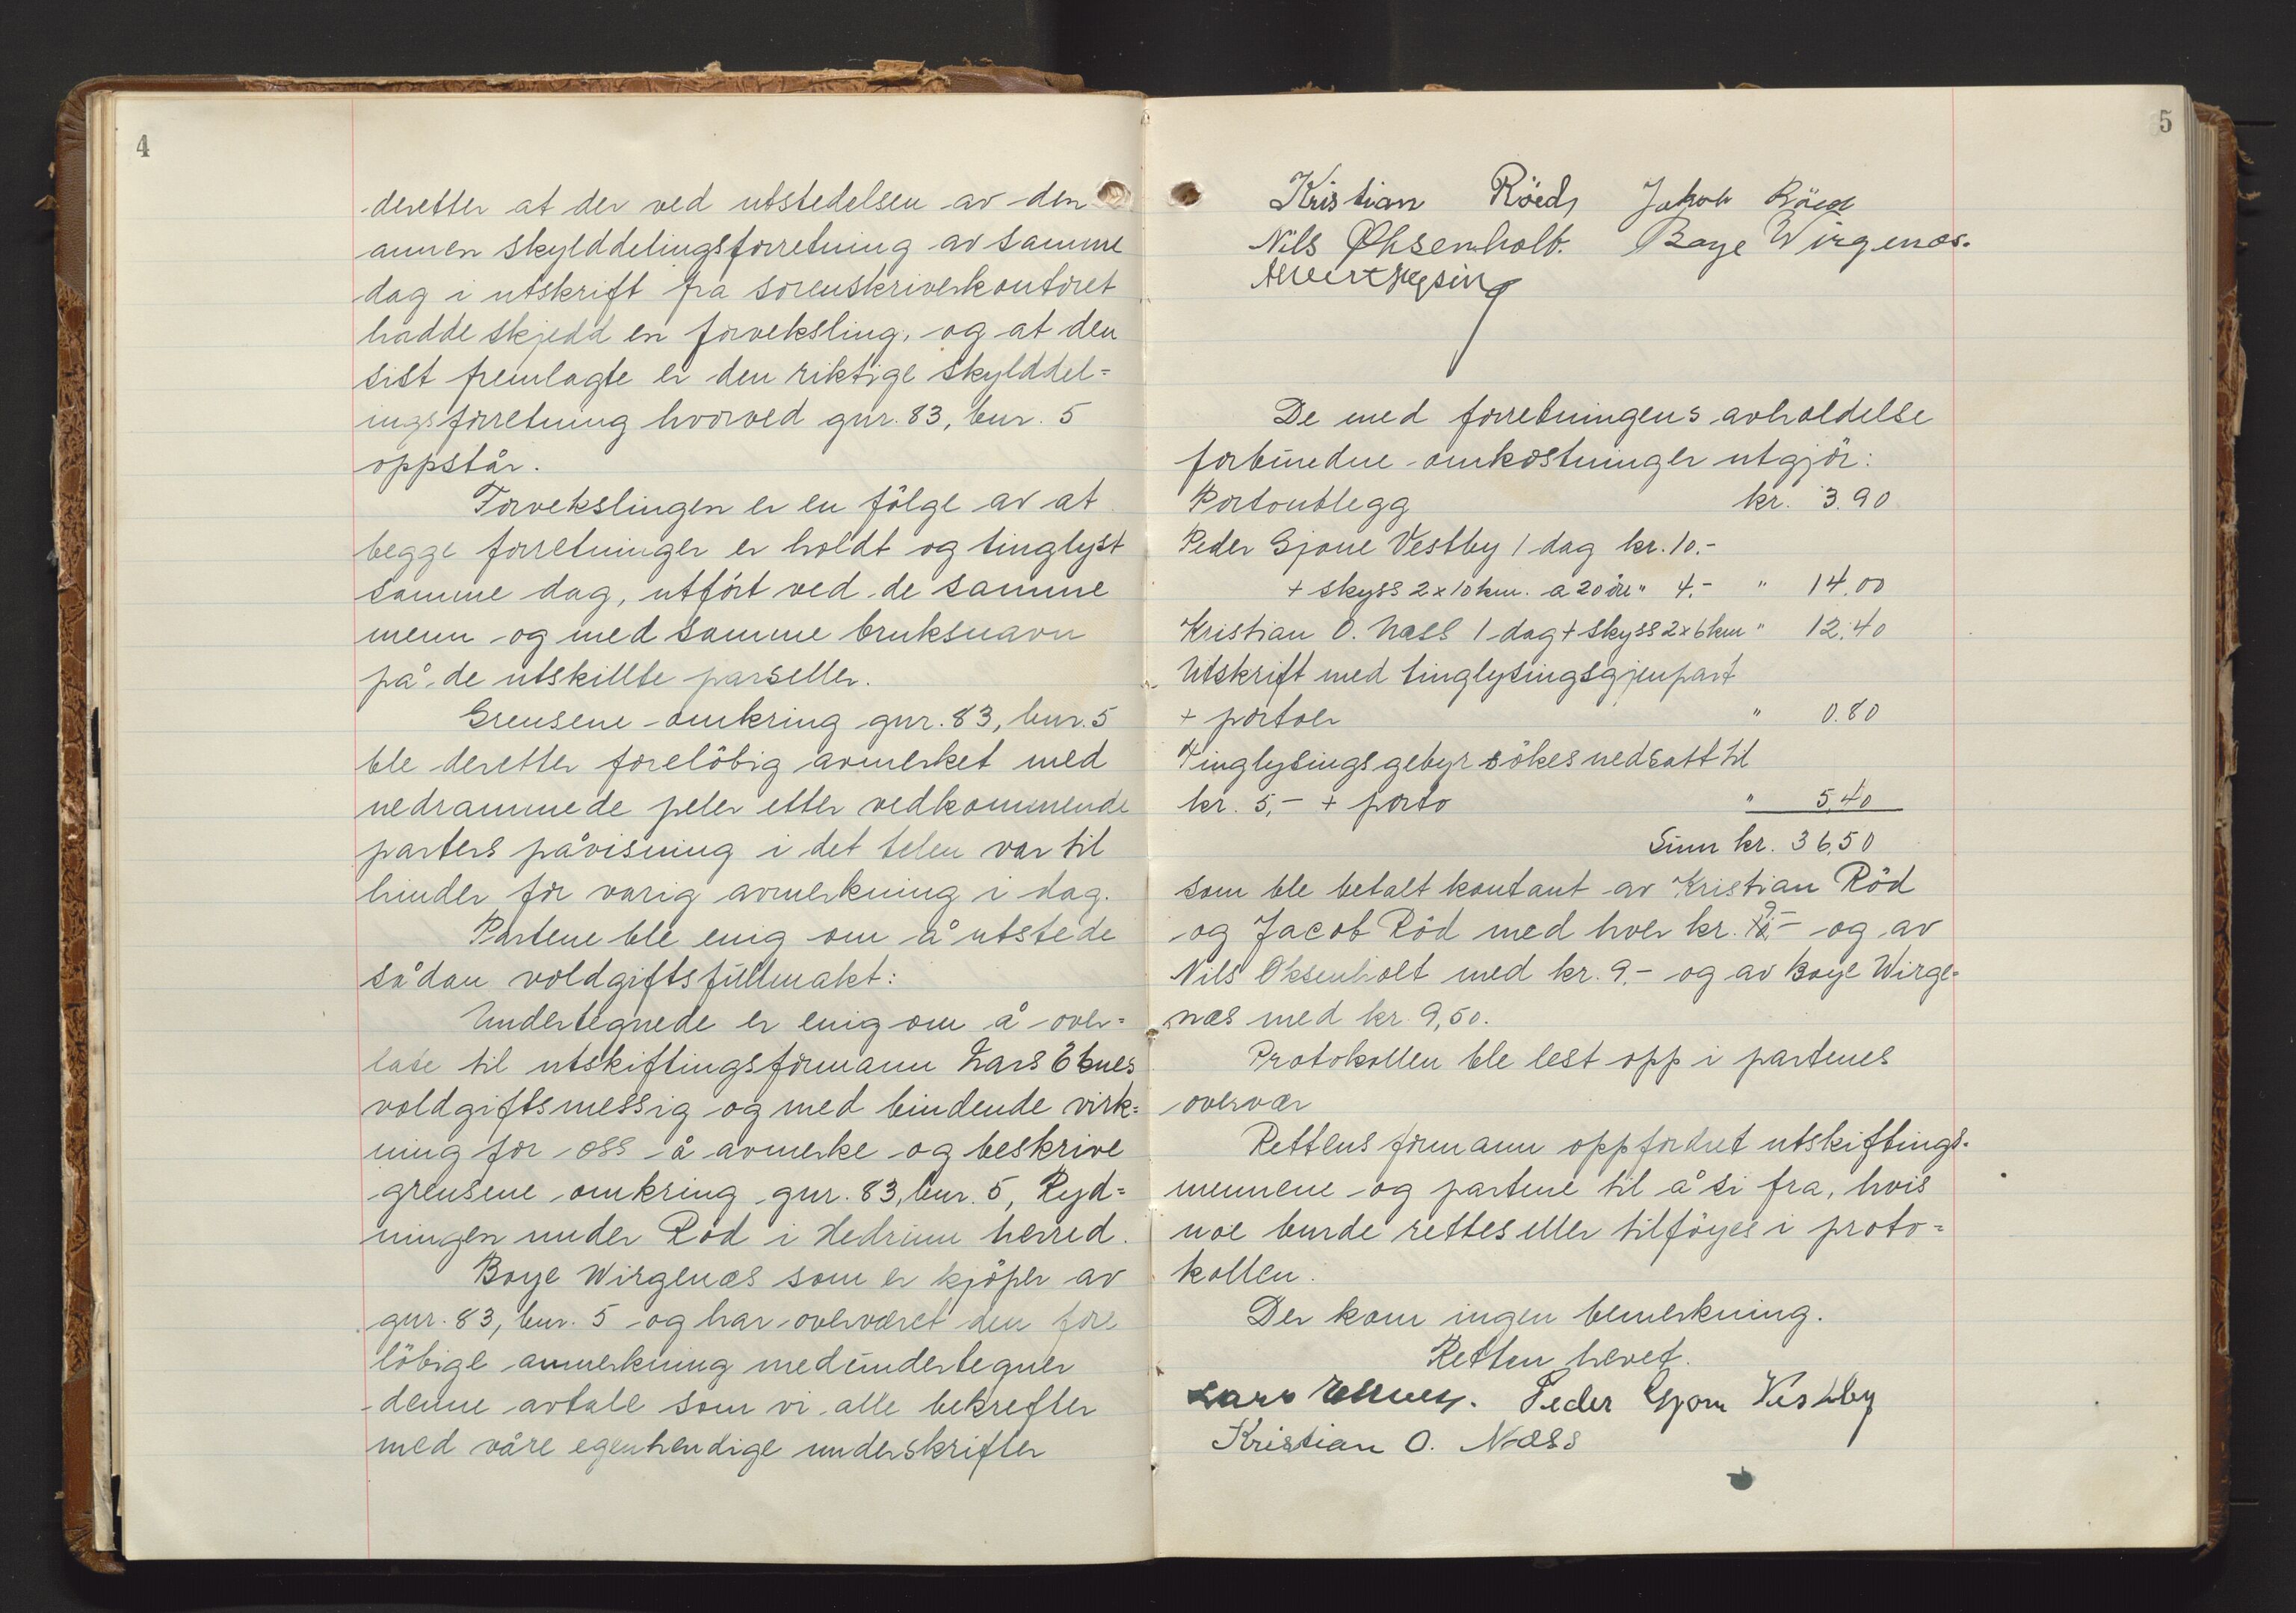 4
deretter at der ved utstedelsen av den
annen skylddelingsforretning av samme
dag i utskrift fra sorenskriverkontoret
hadde skjedd en forveksling, og at den
sist fremlagte er den riktige skylddel=
ingsforretning hvorved gnr. 83, bnr. 5
oppstår.
Forvekslingen er en følge av at
begge forretninger er holdt og tinglyst
samme dag, utført ved de samme
menn og med samme bruksnavn
på de utskillte parseller.
Grensene omkring gnr. 83, bnr. 5
ble deretter foreløbig avmerket med
nedrammede peler etter vedkommende
parters påvisning i det telen var til
hinder for varig avmerkning i dag.
Partene ble enig om å utstede
sådan voldgiftsfullmakt:
Undertegnede er enig om å over=
late til utskiftingsformann Lars Eknes
voldgiftsmessig og med bindende virk=
ning for oss å avmerke og beskrive
grensene omkring gnr. 83, bnr. 5, Ryd=
ningen under Rød i Hedrum herred.
Boye Wirgenæs som er kjøper av
gnr. 83, bnr. 5 og har overværet den fore
løbige avmerkning medundertegner
denne avtale som vi alle bekrefter
med våre egenhendige underskrifter
5
Kristian Röed, Jakob Röed
Nils Øksenholt. Boye Wirgenæs.
De med forretningens avholdelse
forbundne omkostninger utgjør:
Portoutlegg kr. 3.90
Peder Gjone Vestby 1 dag kr. 10.-
+ skyss 2 x 10 km. a 20 øre " 4.- " 14.00
Kristian O. Næss 1 dag + skyss 2 x 6 km " 12.40
Utskrift med tinglysingsgjenpart
+ portoer " 0.80
Tinglysingsgebyr søkes nedsatt til
kr. 5,- + porto " 5,40
Sum kr. 36,50
som ble betalt kontant av Kristian Rød
og Jacob Rød med hver kr. 9,- og av
Nils Oksenholt med kr. 9.- og av Boye Wirge=
næs med kr. 9,50.
Protokollen ble lest opp i partenes
overvær
Rettens formann oppfordret utskiftings-
mennene og partene til å si fra, hvis
noe burde rettes eller tilføyes i proto=
kollen.
Der kom ingen bemerkning.
Retten hevet.
Lars Eknes. Peder Gjone Vestby
Kristian O. Næss